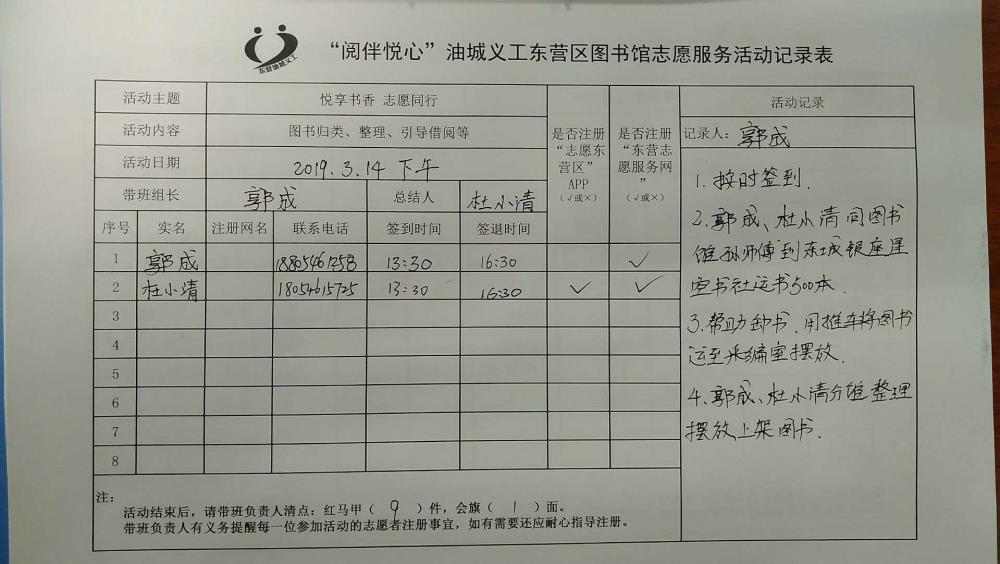 东营油城义工
“阅伴悦心”油城义工东营区图书馆志愿服务活动记录表
活动主题 悦享书香 志愿同行
活动内容 图书归类、整理、引导借阅等
活动日期 2019.3.14 下午
带班组长 郭成 总结人 杜小清
是否注册“志愿东营区”APP（√或×）
是否注册“东营志愿服务网”（√或×）
序号 实名 注册网名 联系电话 签到时间 签退时间
1 郭成 18805461258 13:30 16:30 ✓
2 杜小清 18054615725 13:30 16:30 ✓ ✓
3
4
5
6
7
8
注：
活动结束后，请带班负责人清点：红马甲（ 9 ）件，会旗（ 1 ）面。
带班负责人有义务提醒每一位参加活动的志愿者注册事宜，如有需要还应耐心指导注册。
活动记录
记录人：郭成
1. 按时签到.
2. 郭成、杜小清同图书
馆孙师傅到东城银座星
空书社运书500本.
3. 帮助卸书、用推车将图书
运至采编室摆放.
4、郭成、杜小清分馆整理
摆放上架图书.